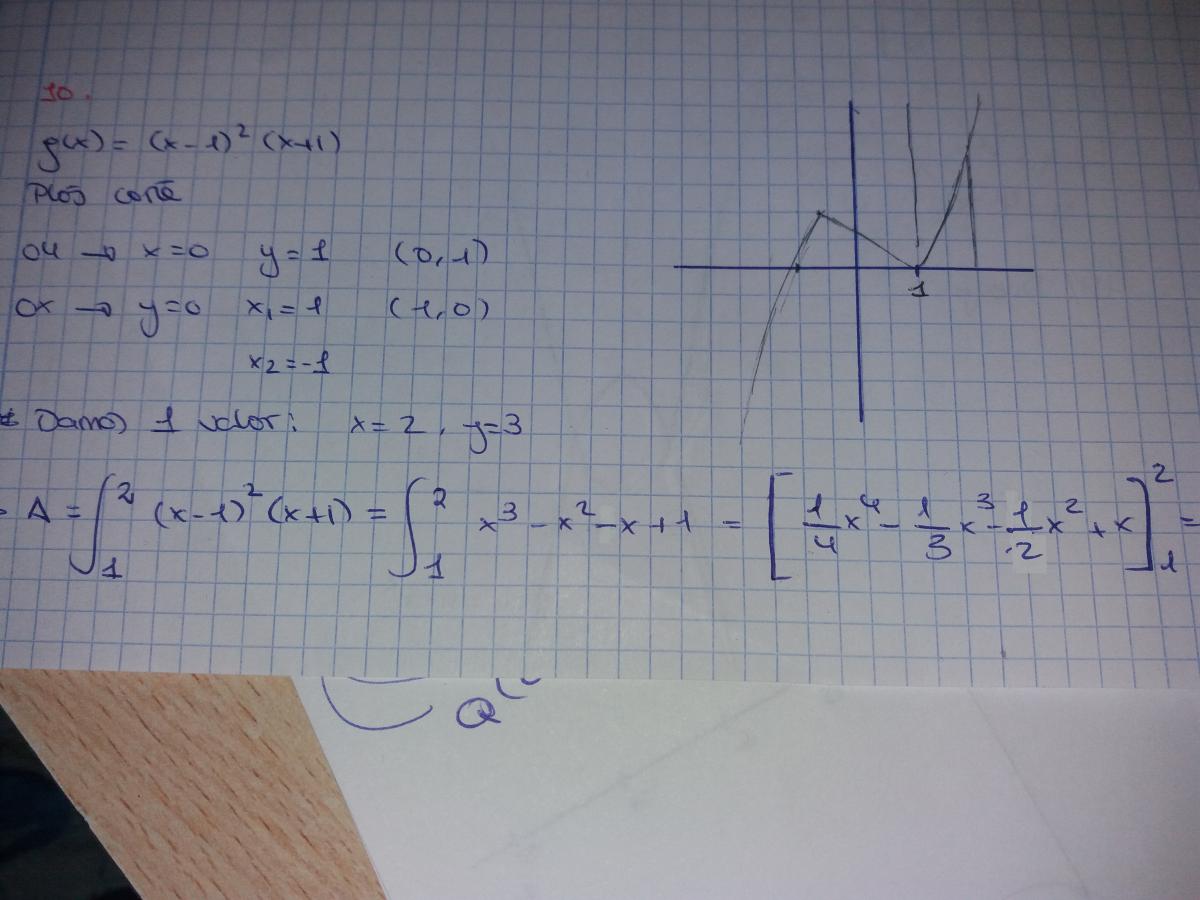 10.
g(x) = (x-1)² (x+1)
Ptos corte
OY → x=0 y=1 (0,1)
OX → y=0 x₁=1 (1,0)
x₂=-1
1
Damos 1 valor: x=2, y=3
A = ∫₁² (x-1)² (x+1) = ∫₁² x³ - x² - x + 1 = [1/4 x⁴ - 1/3 x³ - 1/2 x² + x]₁² =
Q